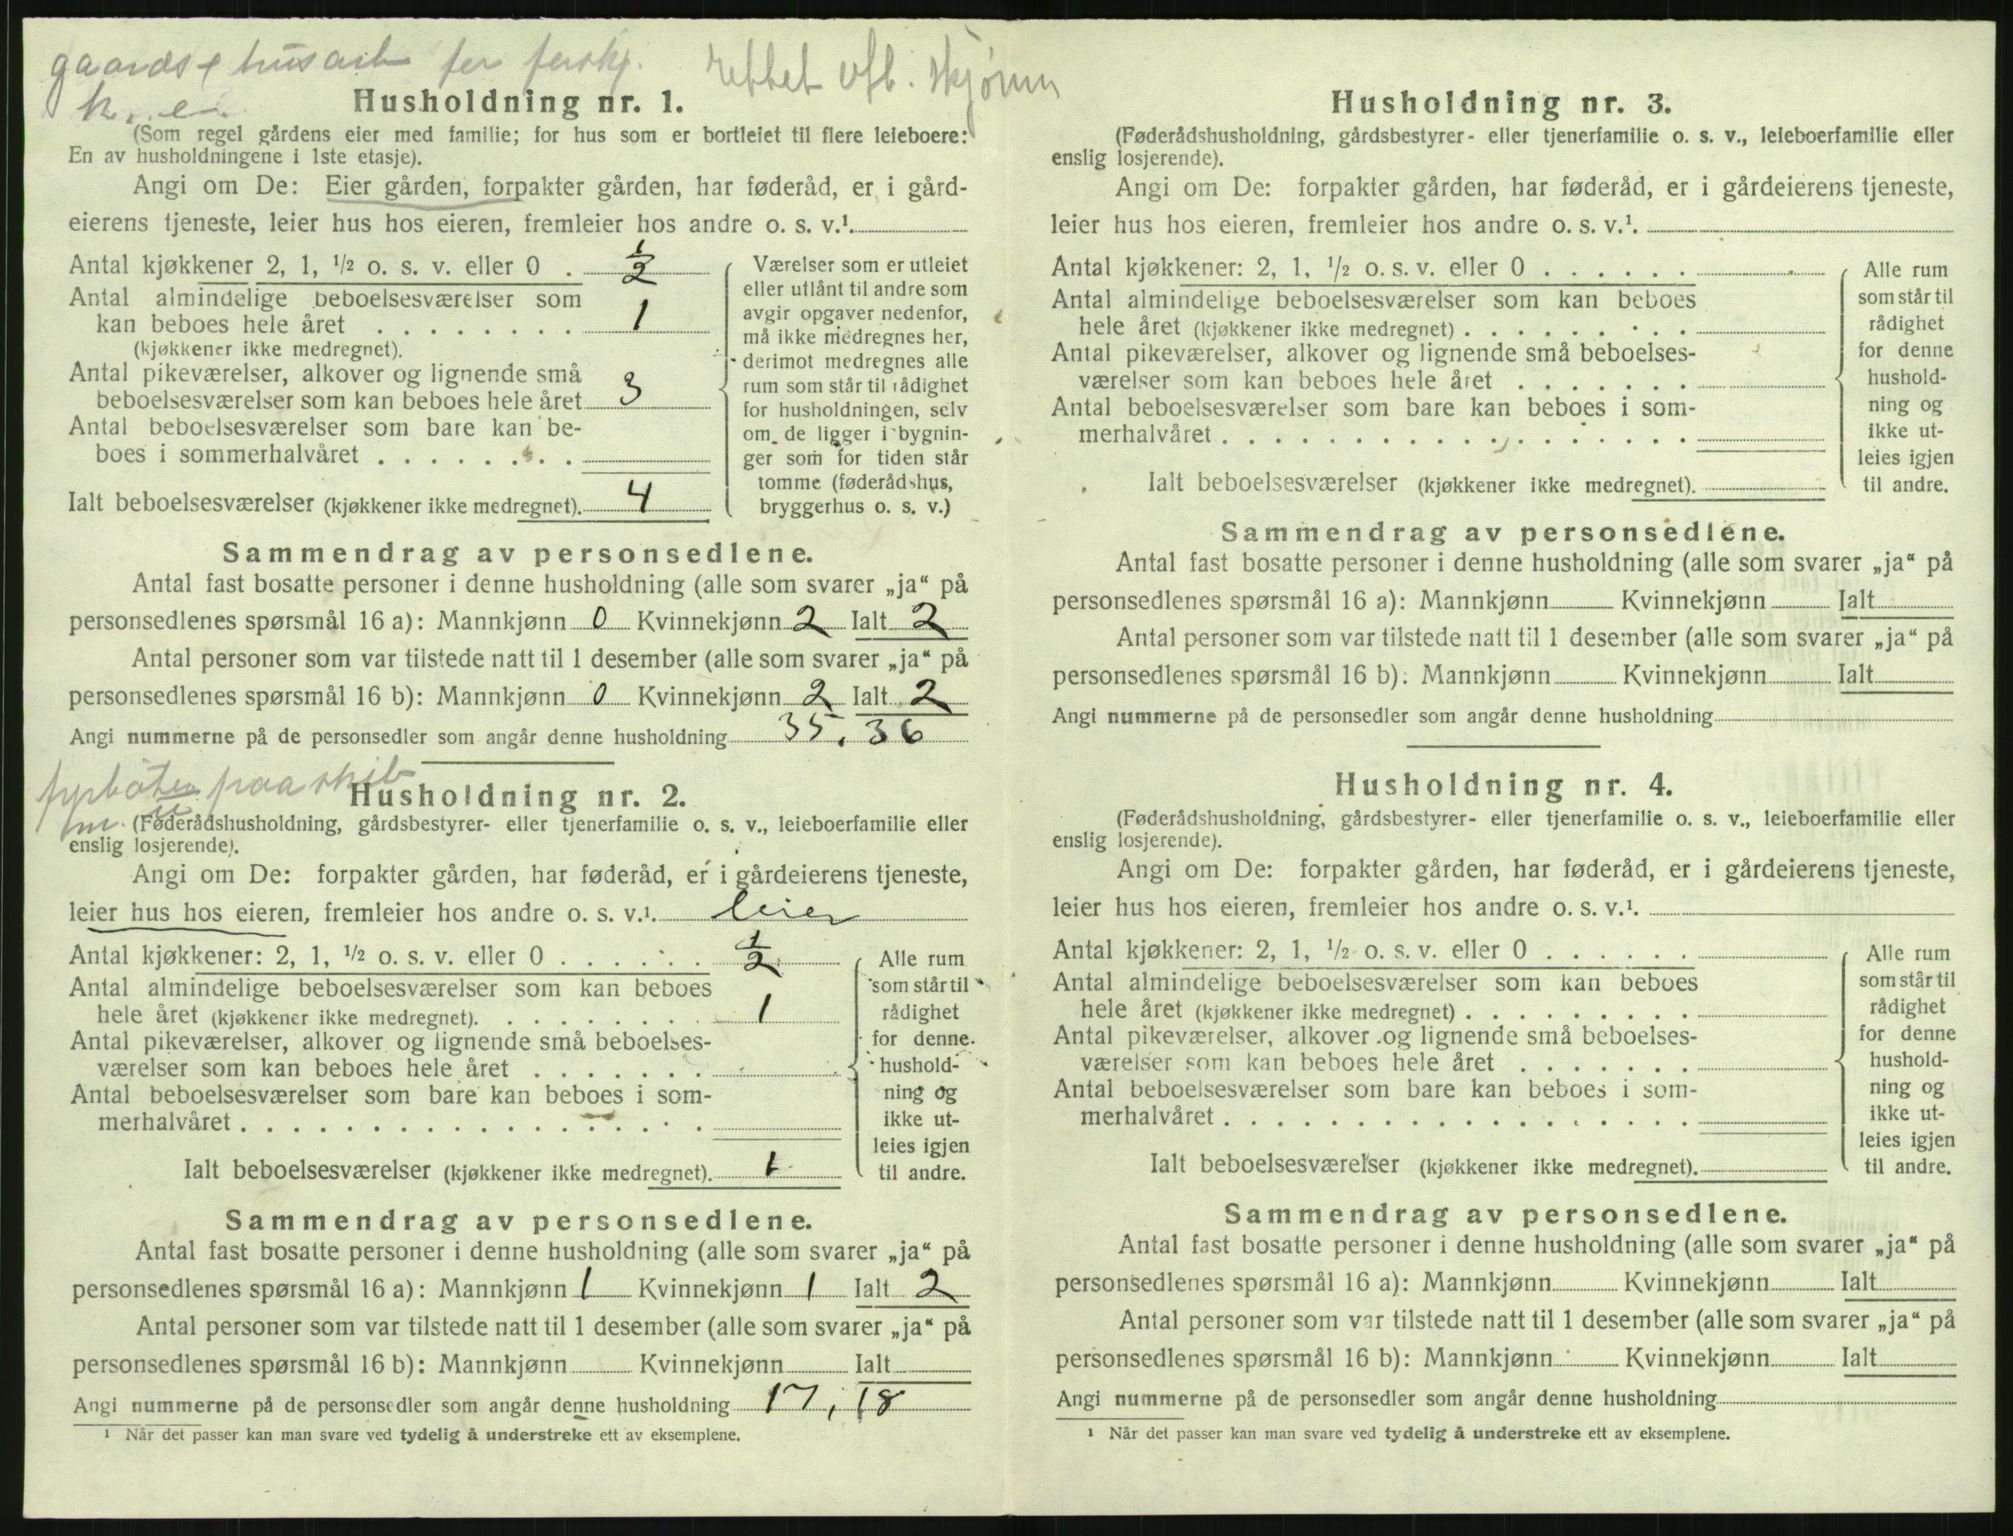 gaards & husarb for forskj.
rettet
Husholdning nr. 1.
(Som regel gårdens eier med familie; for hus som er bortleiet til flere leieboere:
En av husholdningene i 1ste etasje).
Angi om De: Eier gården, forpakter gården, har føderåd, er i gård-
eierens tjeneste, leier hus hos eieren, fremleier hos andre o. s. v.¹.
Antal kjøkkener 2, 1, ¹/₂ o. s. v. eller 0 . ½
Antal almindelige beboelsesværelser som
kan beboes hele året . . . . . . . . 1
(kjøkkener ikke medregnet).
Antal pikeværelser, alkover og lignende små
beboelsesværelser som kan beboes hele året 3
Antal beboelsesværelser som bare kan be-
boes i sommerhalvåret . . . . . . . .
Ialt beboelsesværelser (kjøkkener ikke medregnet). 4
Værelser som er utleiet
eller utlånt til andre som
avgir opgaver nedenfor,
må ikke medregnes her,
derimot medregnes alle
rum som står til rådighet
for husholdningen, selv
om de ligger i bygnin-
ger som for tiden står
tomme (føderådshus,
bryggerhus o. s. v.)
Sammendrag av personsedlene.
Antal fast bosatte personer i denne husholdning (alle som svarer „ja“ på
personsedlenes spørsmål 16 a): Mannkjønn 0 Kvinnekjønn 2 Ialt 2
Antal personer som var tilstede natt til 1 desember (alle som svarer „ja“ på
personsedlenes spørsmål 16 b): Mannkjønn 0 Kvinnekjønn 2 Ialt 2
Angi nummerne på de personsedler som angår denne husholdning 35, 36
fyrbøter paa skib
Husholdning nr. 2.
(Føderådshusholdning, gårdsbestyrer- eller tjenerfamilie o. s. v., leieboerfamilie eller
enslig losjerende).
Angi om De: forpakter gården, har føderåd, er i gårdeierens tjeneste,
leier hus hos eieren, fremleier hos andre o. s. v.¹. leier
Antal kjøkkener: 2, 1, ¹/₂ o. s. v. eller 0 . . . . . . ½
Antal almindelige beboelsesværelser som kan beboes
hele året (kjøkkener ikke medregnet). . . . . . . . . 1
Antal pikeværelser, alkover og lignende små beboelses-
værelser som kan beboes hele året . . . . . . .
Antal beboelsesværelser som bare kan beboes i som-
merhalvåret . . . . . . . . . . . . . . . . . .
Ialt beboelsesværelser (kjøkkener ikke medregnet). 1
Alle rum
som står til
rådighet
for denne
hushold-
ning og
ikke ut-
leies igjen
til andre.
Sammendrag av personsedlene.
Antal fast bosatte personer i denne husholdning (alle som svarer „ja“ på
personsedlenes spørsmål 16 a): Mannkjønn 1 Kvinnekjønn 1 Ialt 2
Antal personer som var tilstede natt til 1 desember (alle som svarer „ja“ på
personsedlenes spørsmål 16 b): Mannkjønn Kvinnekjønn Ialt
Angi nummerne på de personsedler som angår denne husholdning 17, 18
¹ Når det passer kan man svare ved tydelig å understreke ett av eksemplene.
Husholdning nr. 3.
(Føderådshusholdning, gårdsbestyrer- eller tjenerfamilie o. s. v., leieboerfamilie eller
enslig losjerende).
Angi om De: forpakter gården, har føderåd, er i gårdeierens tjeneste,
leier hus hos eieren, fremleier hos andre o. s. v.¹.
Antal kjøkkener: 2, 1, ¹/₂ o. s. v. eller 0 . . . . . .
Antal almindelige beboelsesværelser som kan beboes
hele året (kjøkkener ikke medregnet) . . . . . . . . .
Antal pikeværelser, alkover og lignende små beboelses-
værelser som kan beboes hele året . . . . . . .
Antal beboelsesværelser som bare kan beboes i som-
merhalvåret . . . . . . . . . . . . . . . . . .
Ialt beboelsesværelser (kjøkkener ikke medregnet).
Alle rum
som står til
rådighet
for denne
hushold-
ning og
ikke ut-
leies igjen
til andre.
Sammendrag av personsedlene.
Antal fast bosatte personer i denne husholdning (alle som svarer „ja“ på
personsedlenes spørsmål 16 a): Mannkjønn Kvinnekjønn Ialt
Antal personer som var tilstede natt til 1 desember (alle som svarer „ja“ på
personsedlenes spørsmål 16 b): Mannkjønn Kvinnekjønn Ialt
Angi nummerne på de personsedler som angår denne husholdning
Husholdning nr. 4.
(Føderådshusholdning, gårdsbestyrer- eller tjenerfamilie o. s. v., leieboerfamilie eller
enslig losjerende).
Angi om De: forpakter gården, har føderåd, er i gårdeierens tjeneste,
leier hus hos eieren, fremleier hos andre o. s. v.¹.
Antal kjøkkener: 2, 1, ¹/₂ o. s. v. eller 0 . . . . . .
Antal almindelige beboelsesværelser som kan beboes
hele året (kjøkkener ikke medregnet) . . . . . . . . .
Antal pikeværelser, alkover og lignende små beboelses-
værelser som kan beboes hele året . . . . . . .
Antal beboelsesværelser som bare kan beboes i som-
merhalvåret . . . . . . . . . . . . . . . . . .
Ialt beboelsesværelser (kjøkkener ikke medregnet).
Alle rum
som står til
rådighet
for denne
hushold-
ning og
ikke ut-
leies igjen
til andre.
Sammendrag av personsedlene.
Antal fast bosatte personer i denne husholdning (alle som svarer „ja“ på
personsedlenes spørsmål 16 a): Mannkjønn Kvinnekjønn Ialt
Antal personer som var tilstede natt til 1 desember (alle som svarer „ja“ på
personsedlenes spørsmål 16 b): Mannkjønn Kvinnekjønn Ialt
Angi nummerne på de personsedler som angår denne husholdning
¹ Når det passer kan man svare ved tydelig å understreke ett av eksemplene.